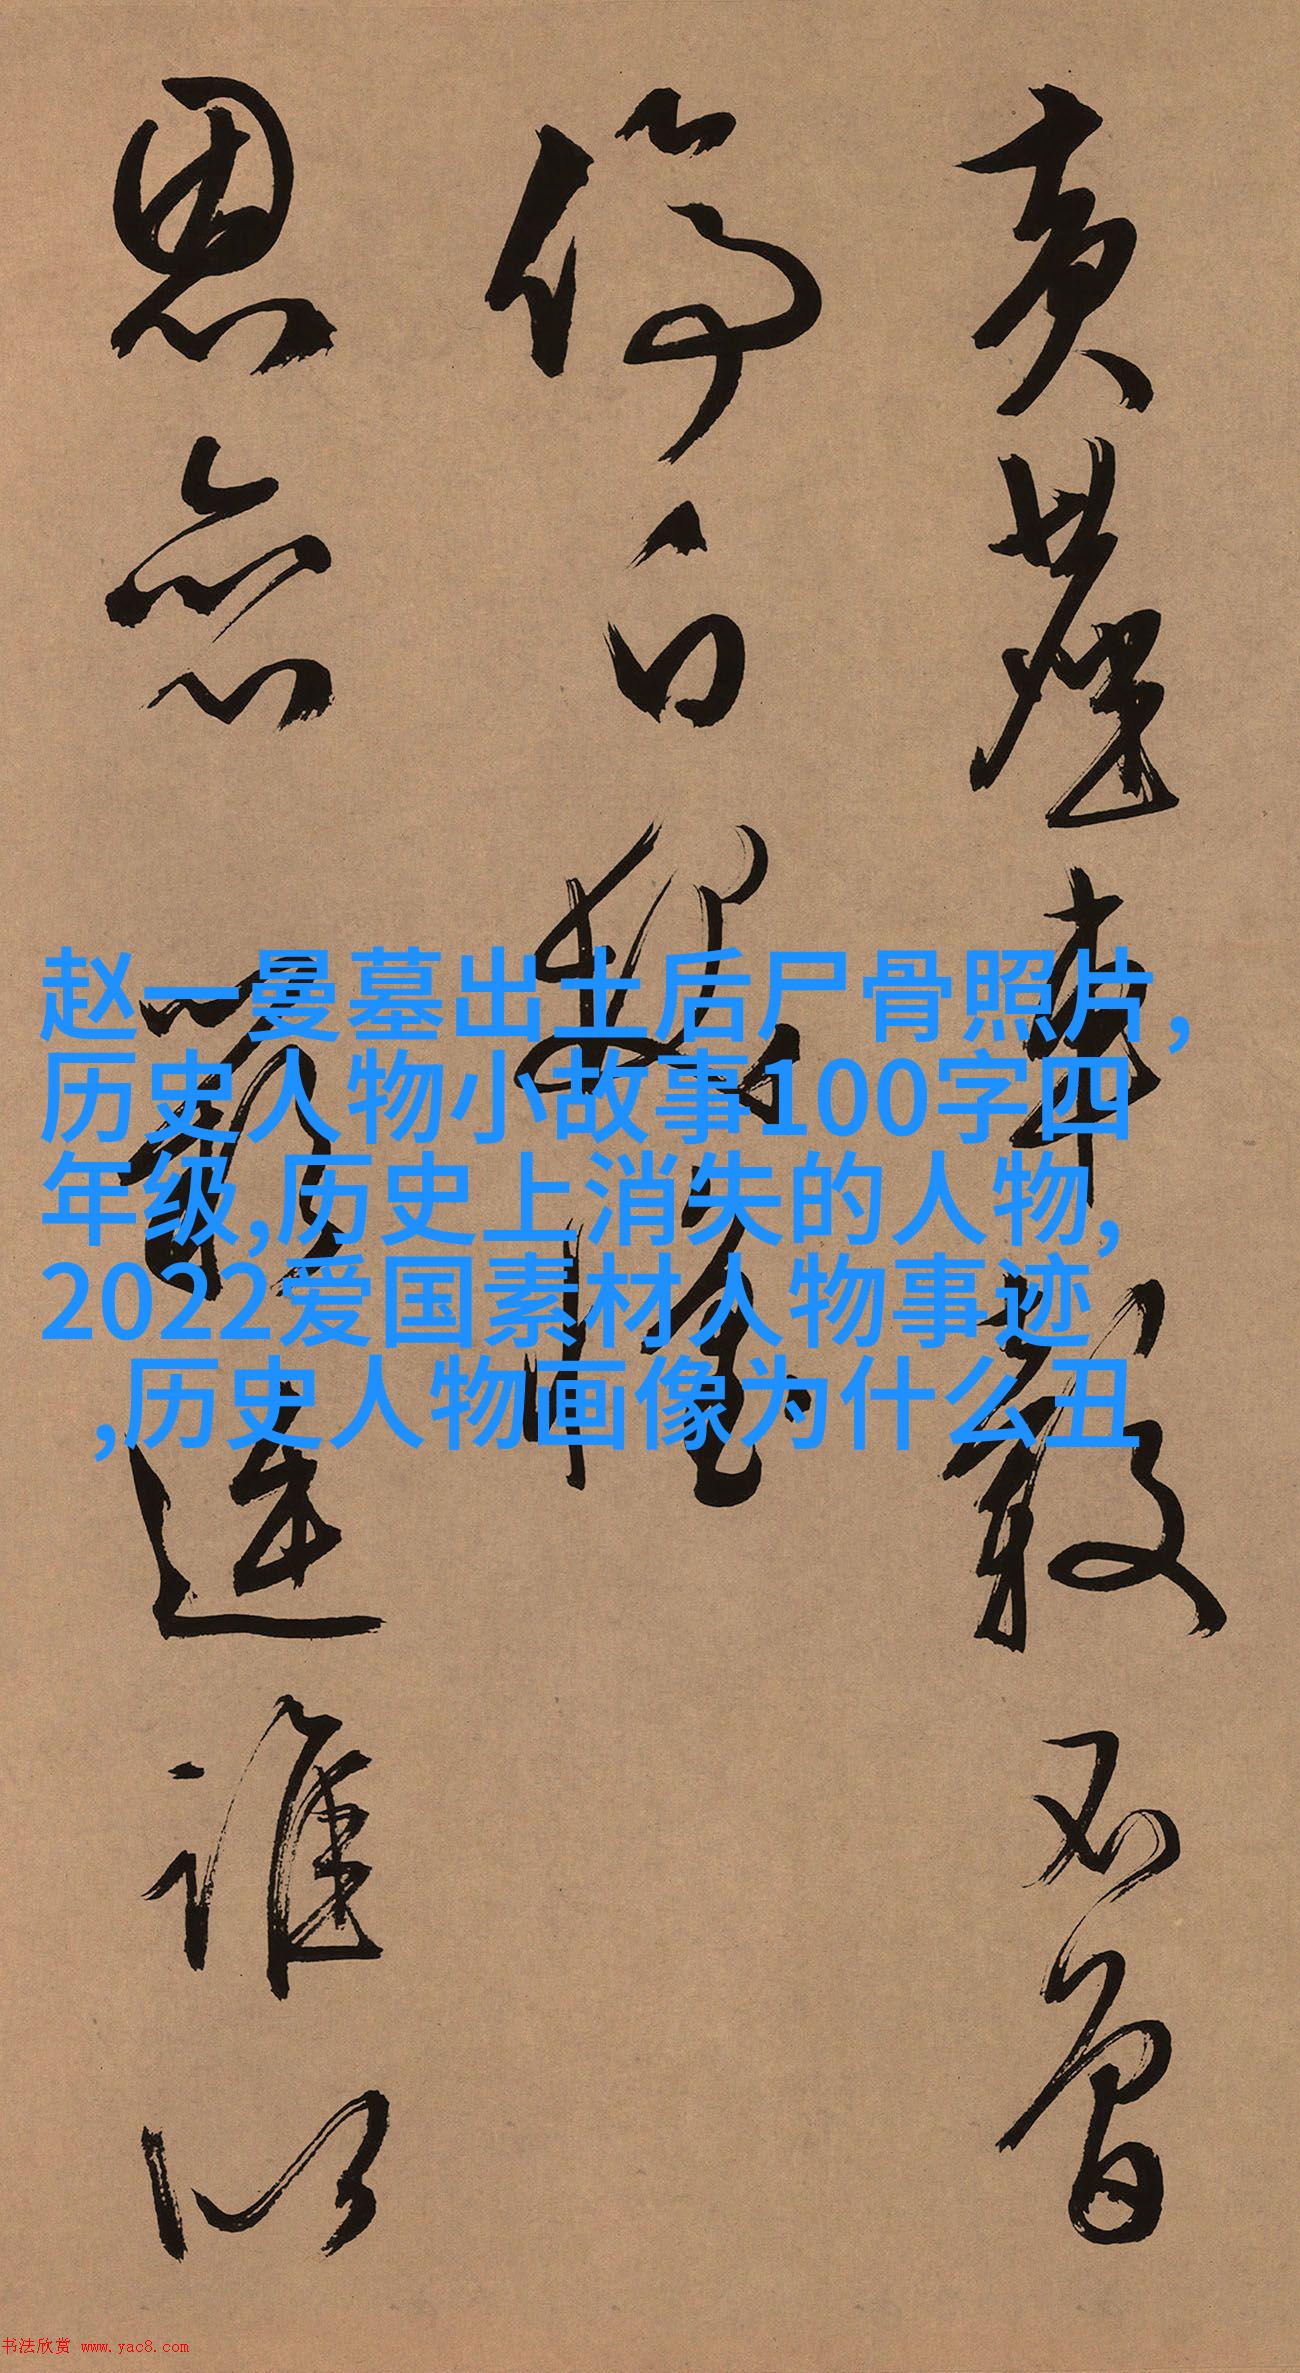 黃塵車轂不曾
停白髮惟
恩
誰以
赵一曼墓出土后尸骨照片,
历史人物小故事100字四
年级,历史上消失的人物,
2022爱国素材人物事迹
,历史人物画像为什么丑
书法欣赏 www.yac8.com